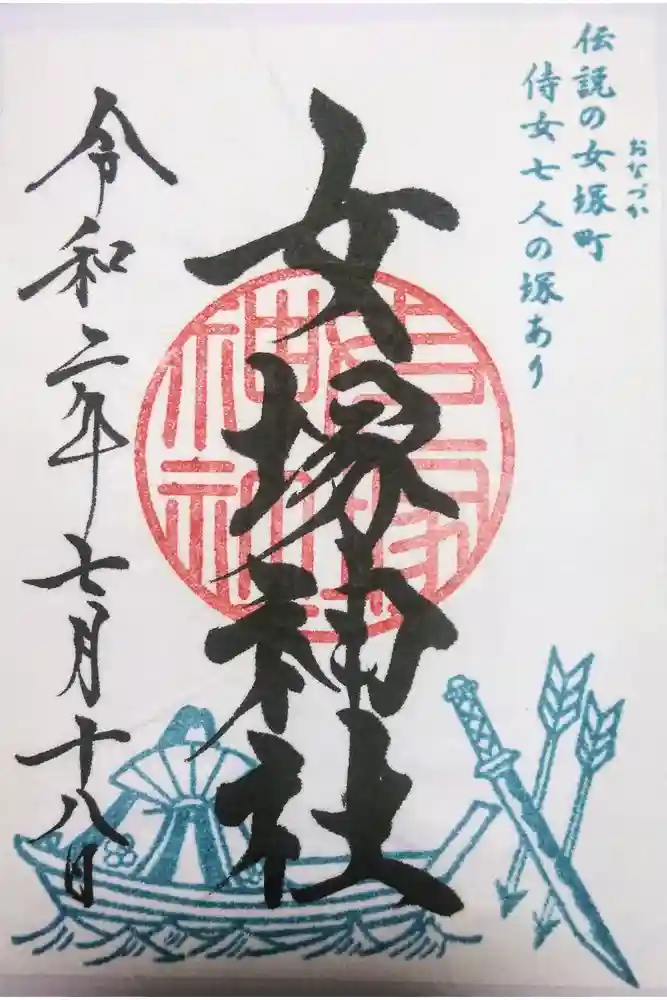 伝説の女塚町
おなづか
侍女七人の塚あり
女塚神社
令和二年七月十八日